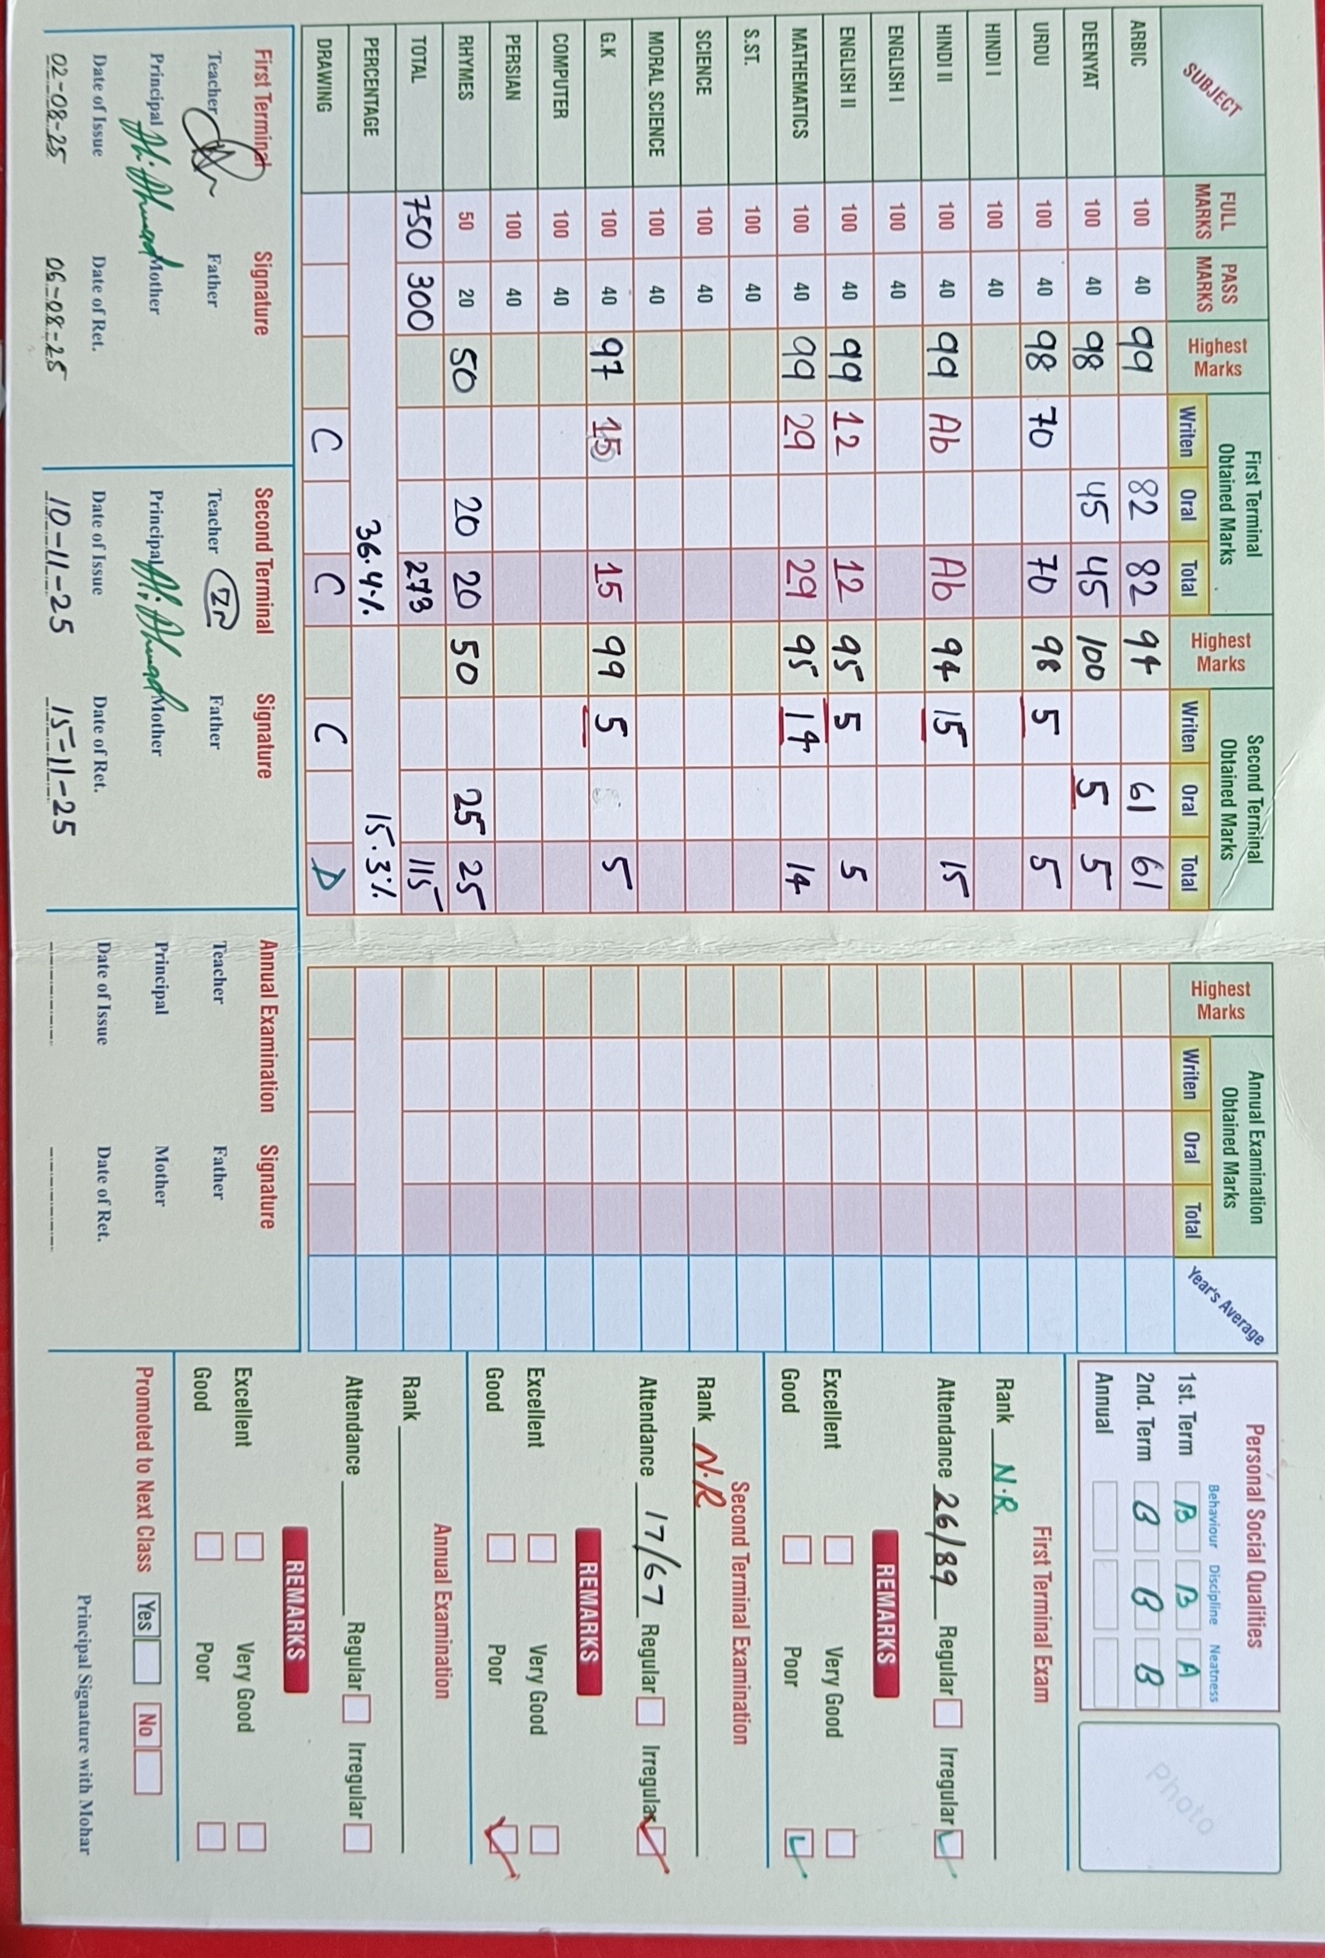 SUBJECT FULL MARKS PASS MARKS Highest Marks First Terminal Obtained Marks Writen Oral Total Highest Marks Second Terminal Obtained Marks Writen Oral Total Highest Marks Annual Examination Obtained Marks Writen Oral Total Year's Average
ARBIC 100 40 99 82 82 94 61 61
DEENYAT 100 40 98 45 45 100 5 5
URDU 100 40 98 70 70 98 5 5
HINDI I 100 40
HINDI II 100 40 99 Ab Ab 94 15 15
ENGLISH I 100 40
ENGLISH II 100 40 99 12 12 95 5 5
MATHEMATICS 100 40 99 29 29 95 14 14
S.ST. 100 40
SCIENCE 100 40
MORAL SCIENCE 100 40
G.K 100 40 97 15 15 99 5 5
COMPUTER 100 40
PERSIAN 100 40
RHYMES 50 20 50 20 20 50 25 25
TOTAL 750 300 273 115
PERCENTAGE 36.4% 15.3%
DRAWING C C C D
First Terminal Signature
Teacher Father
Principal Ali Ahmad Mother
Date of Issue Date of Ret.
02-08-25 06-08-25
Second Terminal Signature
Teacher Father
Principal Ali Ahmad Mother
Date of Issue Date of Ret.
10-11-25 15-11-25
Annual Examination Signature
Teacher Father
Principal Mother
Date of Issue Date of Ret.
Personal Social Qualities
Behaviour Discipline Neatness
1st. Term B B A
2nd. Term B B B
Annual
Photo
First Terminal Exam
Rank N.R
Attendance 26/89 Regular Irregular
REMARKS
Excellent Very Good
Good Poor
Second Terminal Examination
Rank N.R
Attendance 17/67 Regular Irregular
REMARKS
Excellent Very Good
Good Poor
Annual Examination
Rank
Attendance Regular Irregular
REMARKS
Excellent Very Good
Good Poor
Promoted to Next Class Yes No
Principal Signature with Mohar